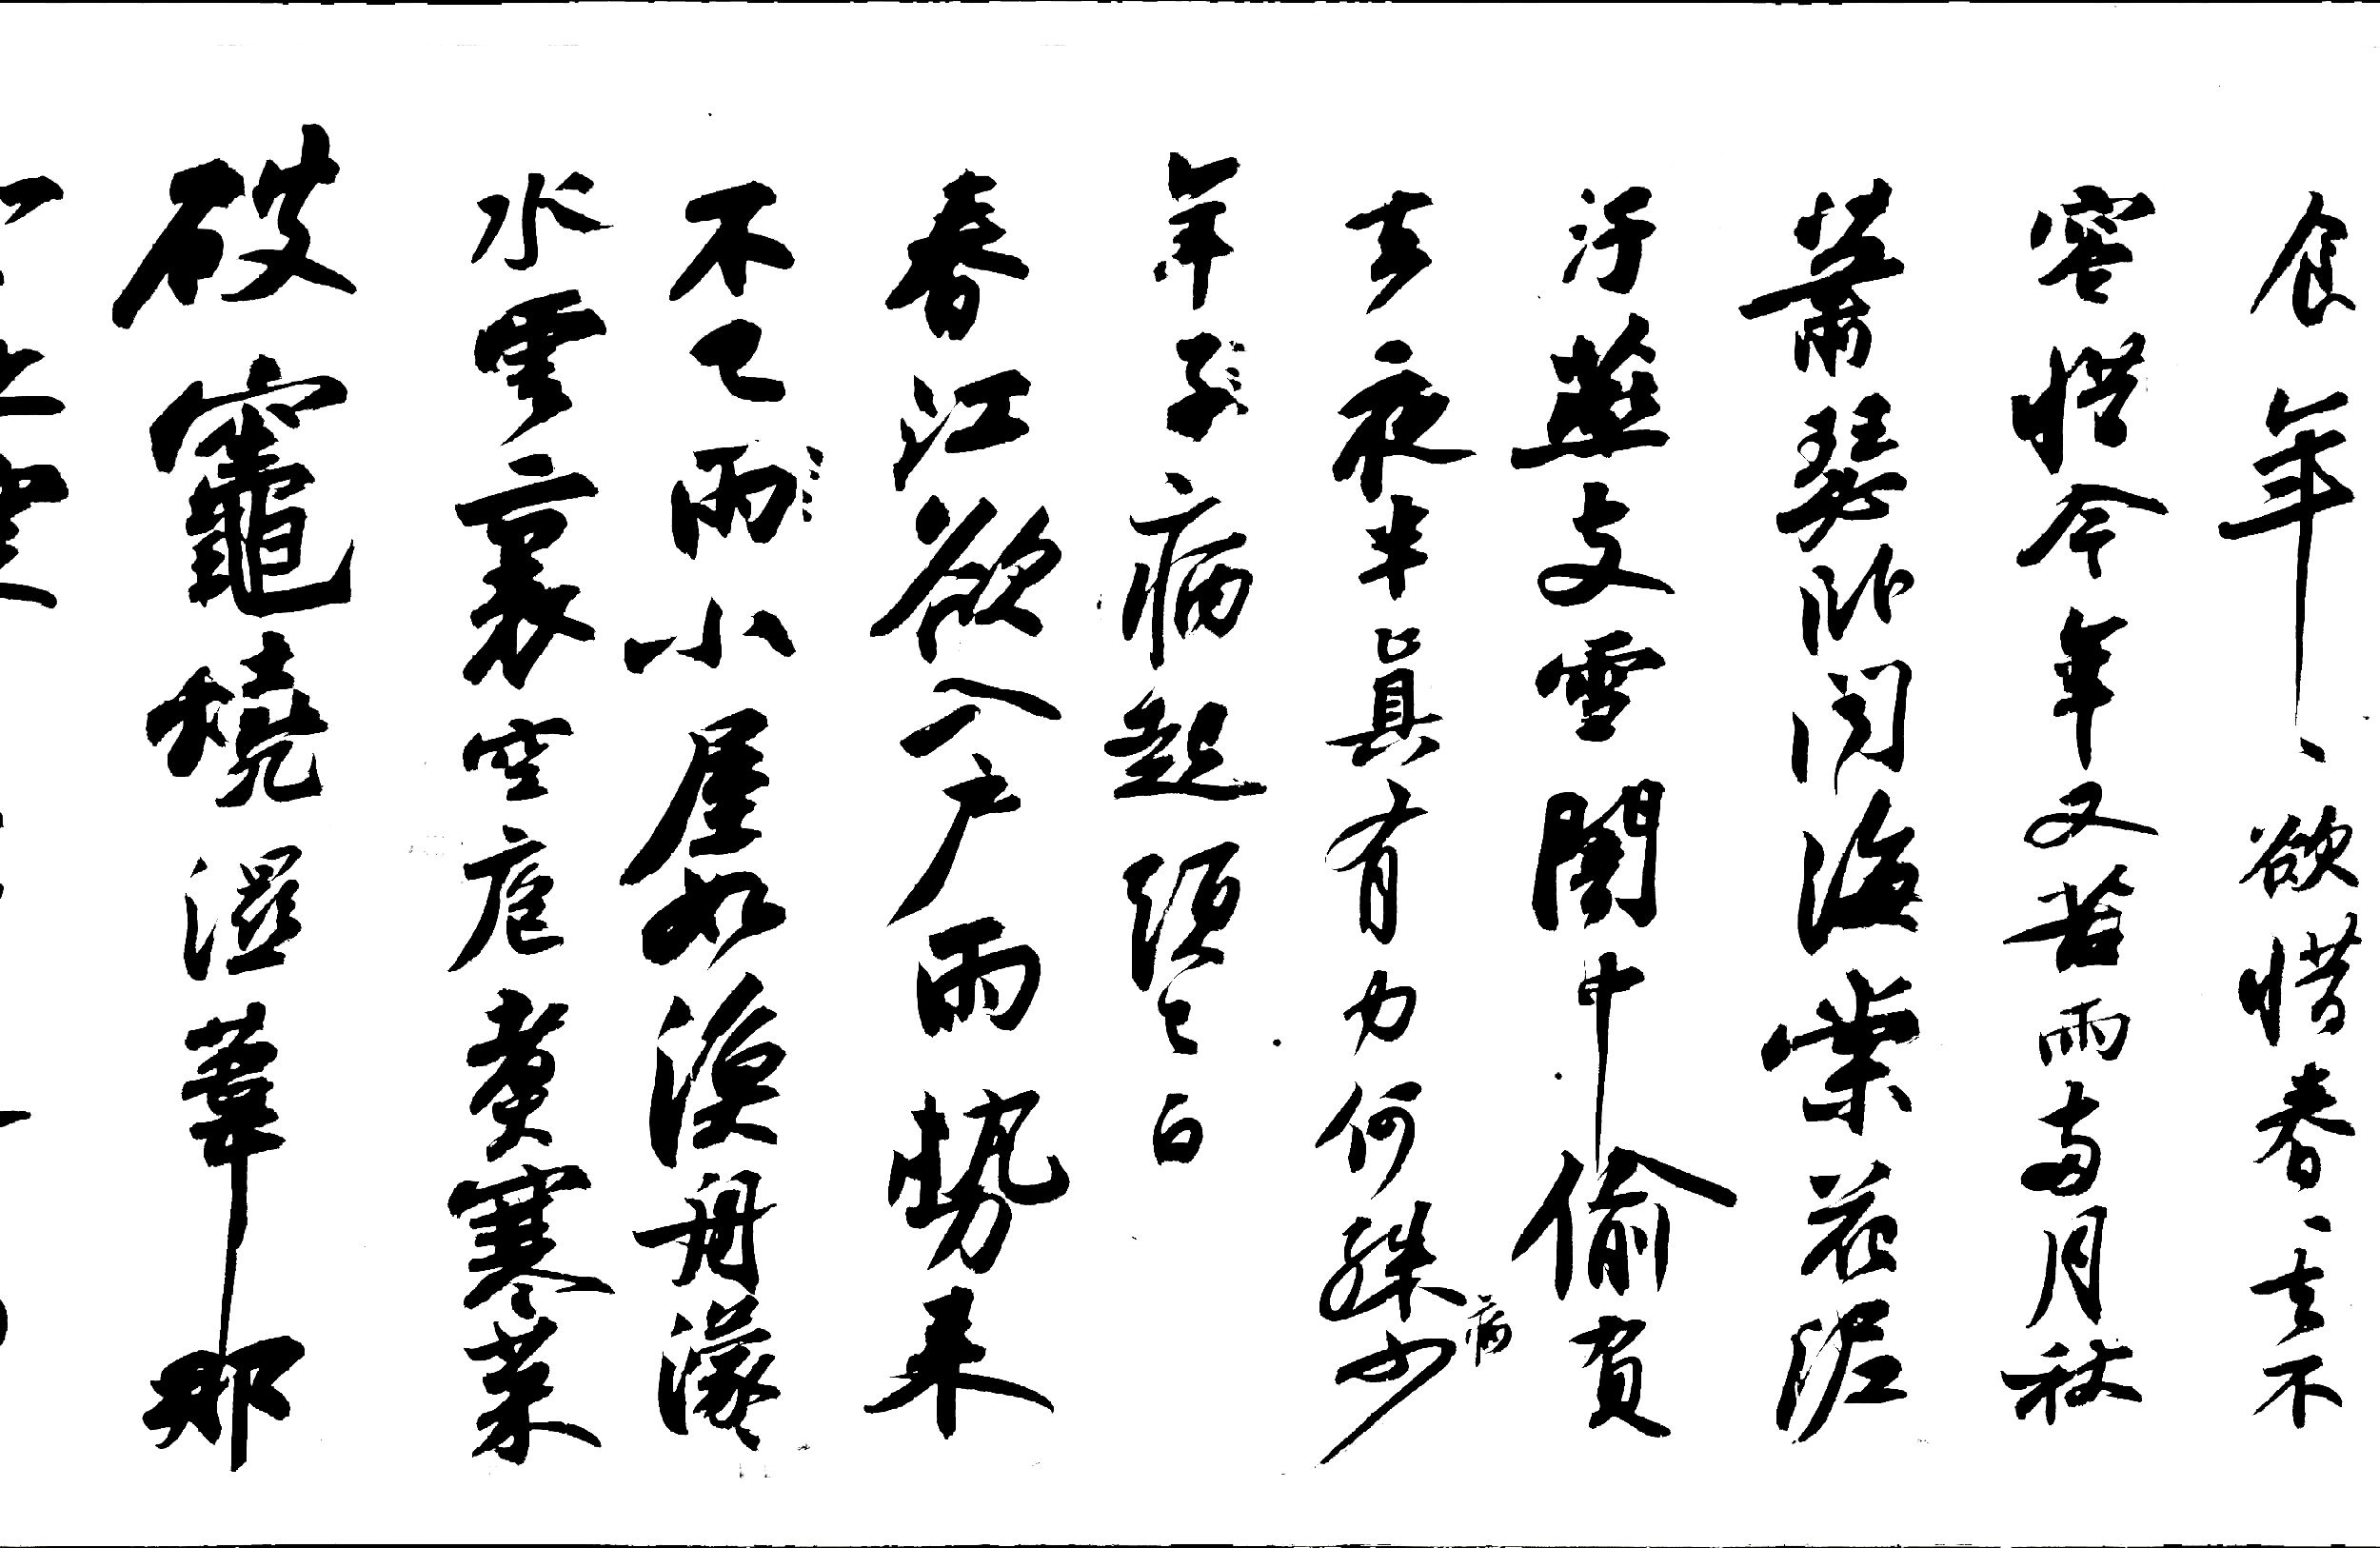 食年、欲惜春、去不
容惜今年又苦雨兩月秋
蕭瑟卧聞海棠花泥
汙燕支雪闇中偷負
去夜半真有力何殊少
病
年子病起須已白
春江欲入户雨勢來
不已雨小屋如漁舟濛
水雲裏空庖煮寒菜
破竈燒濕葦那